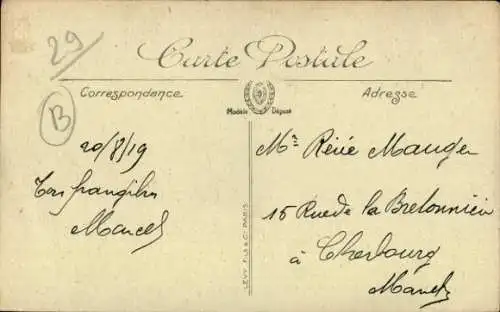 29
Carte Postale
Correspondance
Adresse
B
Modèle Déposé
20/8/19
Ton frangibus
Marcel
Mr René Mauger
15 Rue de la Bretonnière
à Cherbourg
Manche
LEVY FILS & Cie PARIS